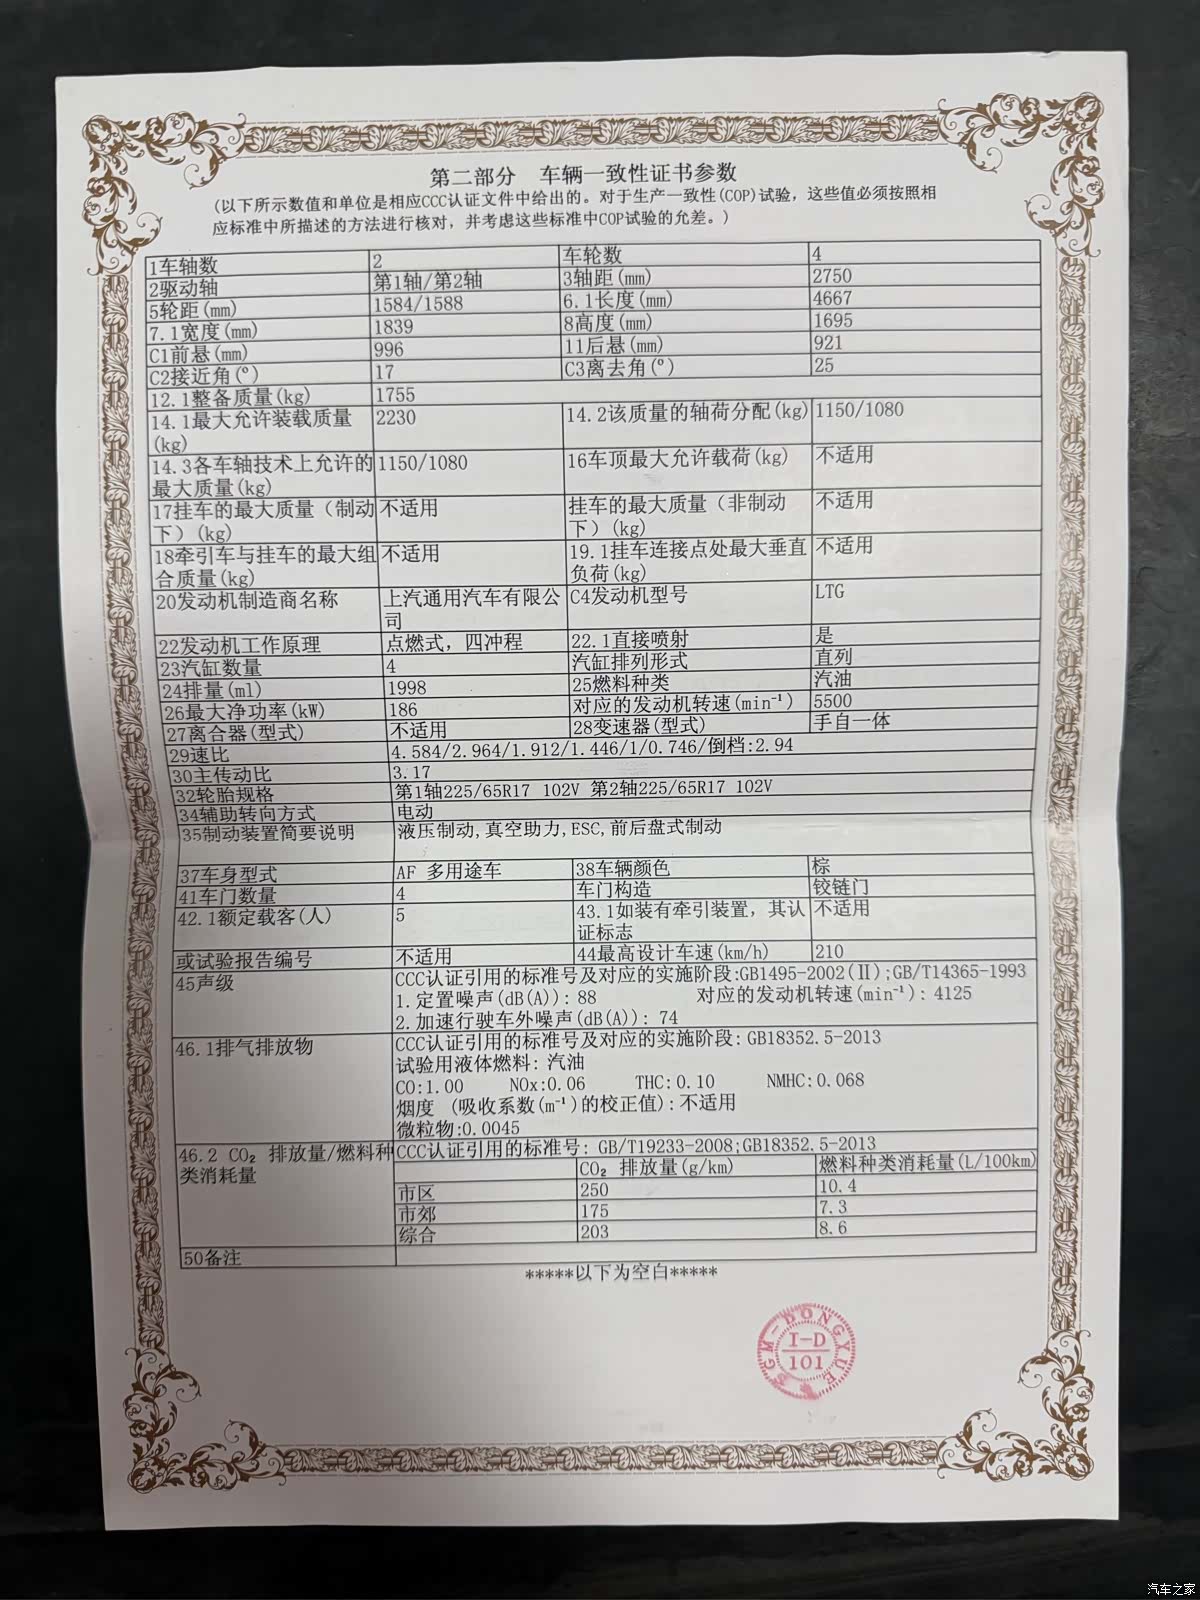 第二部分 车辆一致性证书参数
(以下所示数值和单位是相应CCC认证文件中给出的。对于生产一致性(COP)试验，这些值必须按照相
应标准中所描述的方法进行核对，并考虑这些标准中COP试验的允差。)
1车轴数 2 车轮数 4
2驱动轴 第1轴/第2轴 3轴距(mm) 2750
5轮距(mm) 1584/1588 6.1长度(mm) 4667
7.1宽度(mm) 1839 8高度(mm) 1695
C1前悬(mm) 996 11后悬(mm) 921
C2接近角(º) 17 C3离去角(º) 25
12.1整备质量(kg) 1755
14.1最大允许装载质量 2230 14.2该质量的轴荷分配(kg) 1150/1080
(kg)
14.3各车轴技术上允许的 1150/1080 16车顶最大允许载荷(kg) 不适用
最大质量(kg)
17挂车的最大质量（制动 不适用 挂车的最大质量（非制动 不适用
下）(kg) 下）(kg)
18牵引车与挂车的最大组 不适用 19.1挂车连接点处最大垂直 不适用
合质量(kg) 负荷(kg)
20发动机制造商名称 上汽通用汽车有限公 C4发动机型号 LTG
司
22发动机工作原理 点燃式，四冲程 22.1直接喷射 是
23汽缸数量 4 汽缸排列形式 直列
24排量(ml) 1998 25燃料种类 汽油
26最大净功率(kW) 186 对应的发动机转速(min⁻¹) 5500
27离合器(型式) 不适用 28变速器(型式) 手自一体
29速比 4.584/2.964/1.912/1.446/1/0.746/倒档:2.94
30主传动比 3.17
32轮胎规格 第1轴225/65R17 102V 第2轴225/65R17 102V
34辅助转向方式 电动
35制动装置简要说明 液压制动,真空助力,ESC,前后盘式制动
37车身型式 AF 多用途车 38车辆颜色 棕
41车门数量 4 车门构造 铰链门
42.1额定载客(人) 5 43.1如装有牵引装置，其认 不适用
证标志
或试验报告编号 不适用 44最高设计车速(km/h) 210
45声级 CCC认证引用的标准号及对应的实施阶段:GB1495-2002(Ⅱ);GB/T14365-1993
1.定置噪声(dB(A)): 88 对应的发动机转速(min⁻¹): 4125
2.加速行驶车外噪声(dB(A)): 74
46.1排气排放物 CCC认证引用的标准号及对应的实施阶段:GB18352.5-2013
试验用液体燃料: 汽油
CO:1.00 NOx:0.06 THC:0.10 NMHC:0.068
烟度 (吸收系数(m⁻¹)的校正值):不适用
微粒物:0.0045
46.2 CO₂ 排放量/燃料种 CCC认证引用的标准号: GB/T19233-2008;GB18352.5-2013
类消耗量 CO₂ 排放量(g/km) 燃料种类消耗量(L/100km)
市区 250 10.4
市郊 175 7.3
综合 203 8.6
50备注
*****以下为空白*****
SGM-DONGYUE
I-D
101
汽车之家